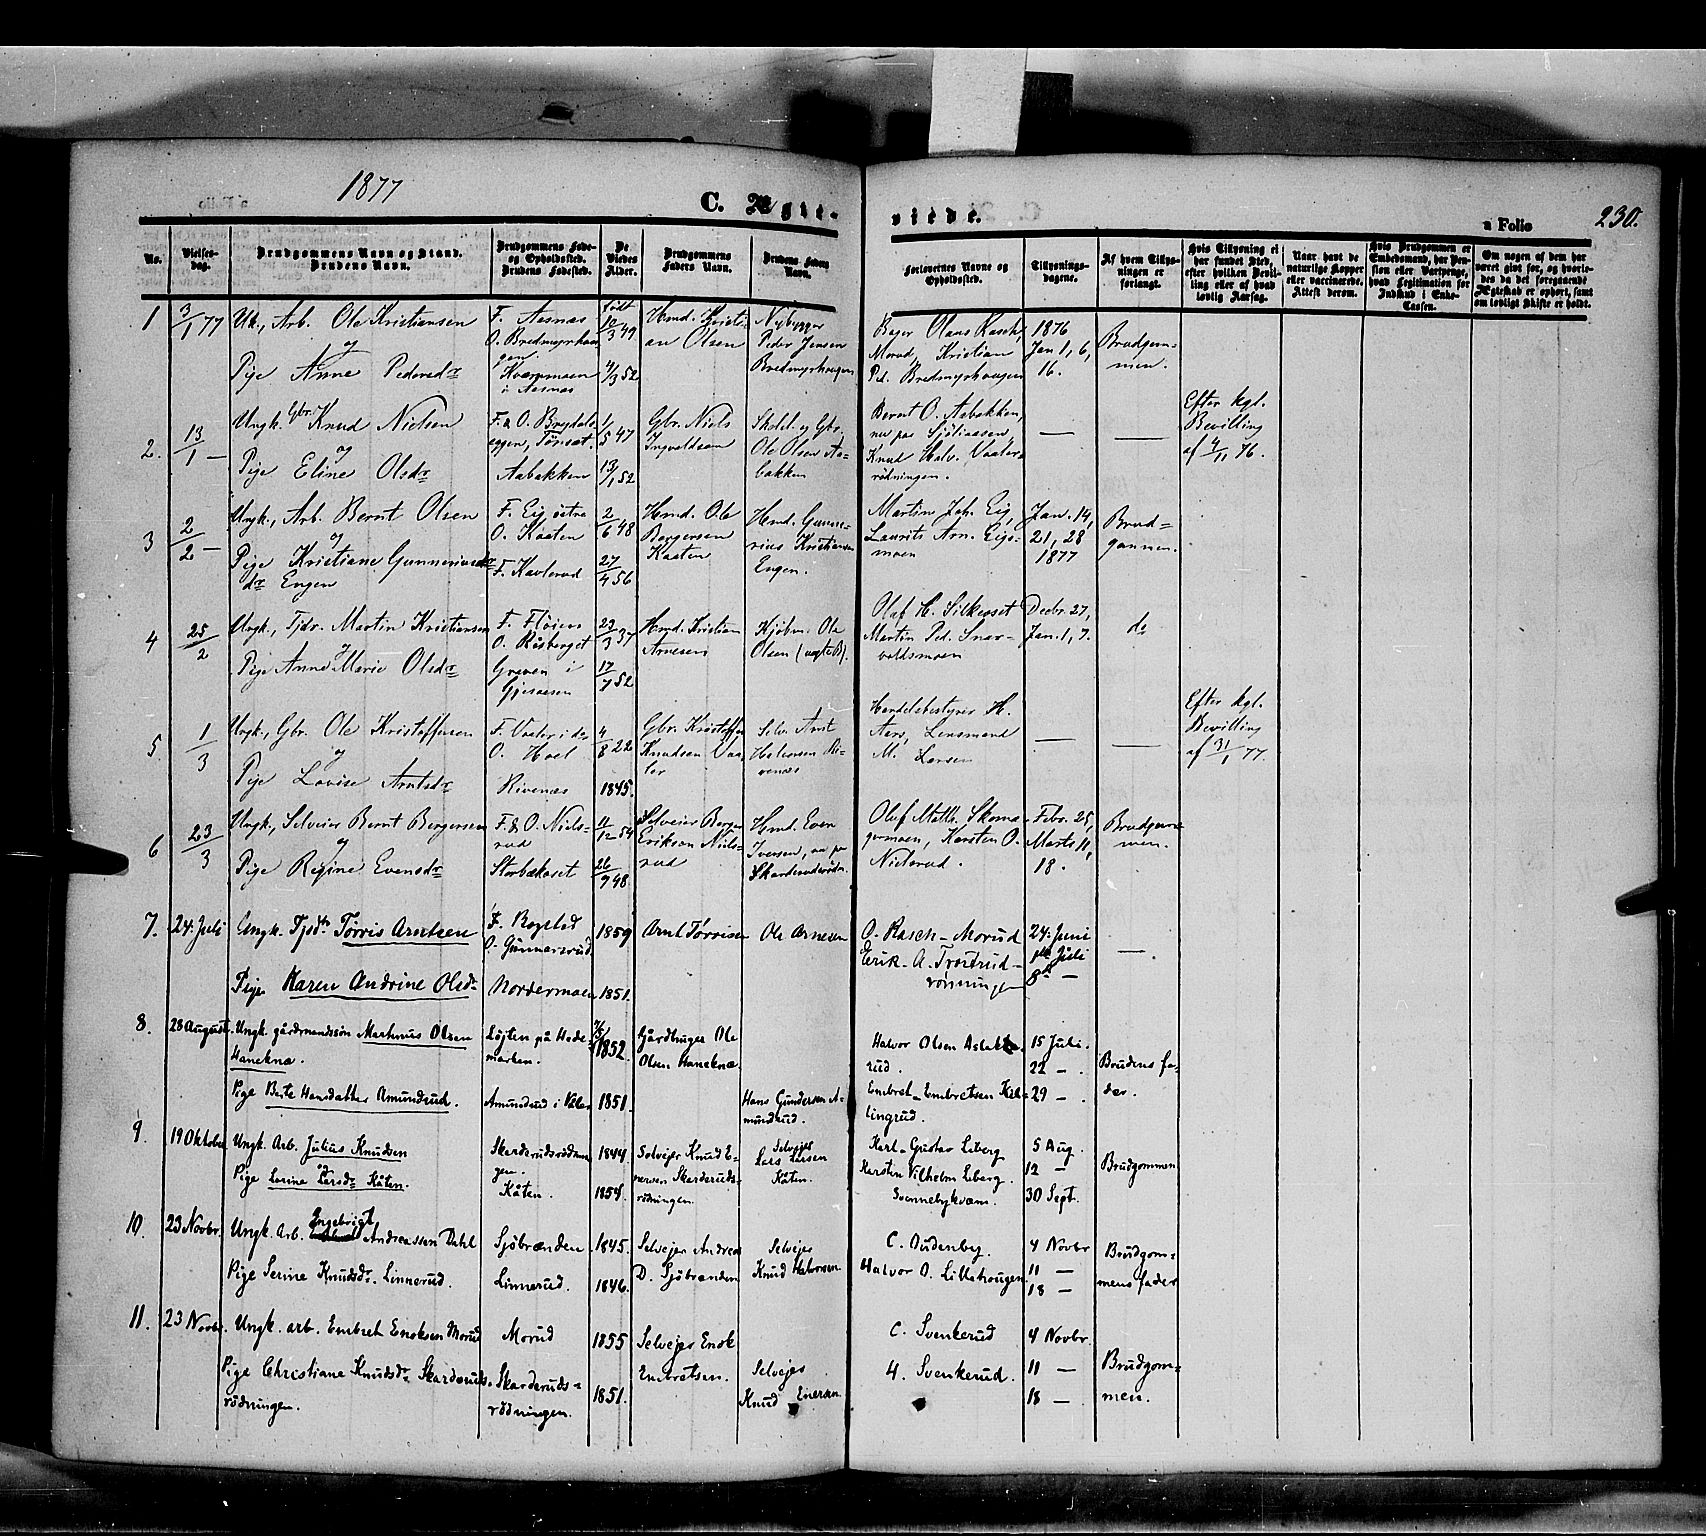 1877
C. Ægte-
viede.
a Folio
230.
No.
Vielses-
dag.
Brudgommens Navn og Stand.
Brudens Navn.
Brudgommens Føde-
og Opholdssted.
Brudens Fødested.
De
Viedes
Alder.
Brudgommens
Faders Navn.
Brudens Faders
Navn.
Forlovernes Navne og
Opholdssted.
Tillysnings-
dagene.
Af hvem Tillys-
ningen er
forlangt.
Hvis Tillysning ei
har fundet Sted,
efter hvilken Bevil-
ling eller af hvad
lovlig Aarsag.
Naar havt de
naturlige Kopper
eller vaccinerede.
Attest derom.
Hvis Brudgommen er
Embedsmand, har Pen-
sion eller Vartpenge,
hvad Legitimation for
Indskud i Enke-
Cassen.
Om nogen af dem har
været gift før, og hvorle-
des da det foregaaende
Ægteskab er ophørt, samt
om lovligt Skifte er holdt.
1 3/1 77 Uk., Arb. Ole Kristiansen
og
Pige Anne Pedersdr
F. Aasnæs
O. Bredmyrhau-
gen
Kværnmoen
i Aasnæs
født
12/3 49
4/3 52
Hmd. Kristi-
an Olsen
Nybygger
Peder Jensen
Bredmyrhaugen
Bager Olaus Rasch,
Morud, Kristian
Ped. Bredmyrhaugen
1876
Jan 1, 6,
16.
Brudgom-
men.
2. 13/1 — Ungk. Gbr. Knud Nielsen
og
Pige Eline Olsdr
F. & O. Brydals-
eggen, Tønset
Aabakken
1/5 47
13/1 52
Gbr. Niels
Ingvaldsen
Skolel. og Gbr.
Ole Olsen Aa-
bakken
Bernt O. Aabakken,
nu paa Sjøliaasen,
Knud Halv. Vaaler-
rødningen.
—
—
Efter kgl.
Bevilling
af 4/11 76.
3 2/2 — Ungk., Arb. Bernt Olsen
og
Pige Kristiane Gunneriusdr
dr Engen
F. Eig østre
O. Kaaten
F. Kavlerud
2/6 48
27/4 56
Hmd. Ole
Borgersen
Kaaten
Hmd. Gunne-
rius Kristiansen
Engen.
Martin Joh. Eig,
Laurits Arn. Eigs-
moen
Jan. 14,
21, 28
1877
Brud-
gommen.
4 25/2 Ungk., Tjdr. Martin Kristiansen
og
Pige Anne Marie Olsdr
F. Fløien
O. Risberget
Graven i
Gjesaasen
23/3 37
17/7 52
Hmd. Kristian
Arnesen
Kjøbm. Ole
Olsen (uægte B).
Olaf H. Silkeset
Martin Ped. Snar-
voldsmoen
Decbr. 27,
Jan. 1, 7.
do
5. 1/3 Ungk., Gbr. Ole Kristoffersen
og
Pige Lovise Arntsdr
F. Vaaler i dr
O. Hoel
Rivenæs
4/8 22
1845.
Gbr. Kristoffer
Knudsen Vaa-
ler
Selv. Arnt
Halvorsen Ri-
venæs
Handelsbestyrer H.
Aas, Lensmand
M. Larsen
—
—
Efter kgl.
Bevilling
af 31/1 77.
6 23/3 Ungk., Selveier Bernt Bergersen
og
Pige Regine Evensdr
F. & O. Niels-
rud
Storbækaset
11/12 54
26/9 48
Selveier Berger
Erikson Niels-
rud
Hmd. Even
Iversen, nu paa
Skarderudrødn.
Oluf Math. Skoma-
germoen, Karsten O.
Nielsrud.
Febr. 25,
Marts 11,
18.
Brudgom-
men.
7. 24. Juli Ungk. Tjsdr Tørris Arntsen
Pige Karen Andrine Olsdr
F. Bogstad
O. Gunnarsrud
Nordermoen
1859
1851.
Arnt Tørrisen
Ole Arnesen
O. Rasch - Morud
Erik A. Trøstrud-
rønningen
24. Juni
1ste Juli
8de —
—
8. 28 August. Ungk. gårdmandssøn Marthinus Olsen
Hanekna.
Pige Berte Hansdatter Amundrud.
Løjten på Hede-
marken.
Amundrud i Våler
1852.
1851.
Gårdbruger Ole
Olsen Hanekna.
Hans Gundersen A-
mundrud.
Halvor Olsen Aslak-
rud.
Embret Embretsen Kil-
lingrud.
15 Juli.
22 —.
29 —.
Brudens fa-
der.
9. 19 Oktober Ungk. Arb. Julius Knudsen
og
Pige Lorine Larsdr Kåten.
Skarderudsrødnin-
gen.
Kåten.
1844.
1854.
Selvejer Knud E-
nersen Skarderuds-
rødningen.
Selvejer
Lars Larsen
Kåten.
Karl Gustav Liberg
Karsten Vilhelm Liberg.
Svennebykværn.
5 Aug.
12 —
30 Sept.
Brudgommen
10. 23 Novbr. Ungk. Arb. Engebrigt Andreassen Dahl
Pige Serine Knudsdr. Linnerud.
Sjøbrænden
Linnerud.
1845.
1846.
Selvejer Andreas
D. Sjöbrænden
Selvejer
Knud Halvorsen
C. Dudenberg.
Halvor O. Lillehougen
4 Novbr
11 —
18 —
Brudgom-
mens fader
11. 23 Novbr. Ungk. arb. Embret Enoksen Morud
Pige Christiane Knudsdr Skarderuds-
rødningen.
Morud
Skarderuds-
rødningen.
1855
1851.
Selvejer Enok
Embretsen.
Selvejer
Knud Enersen
C. Svenkerud
H. Svenkerud.
4 Novbr.
11 —
18 —
Brudgom-
men.